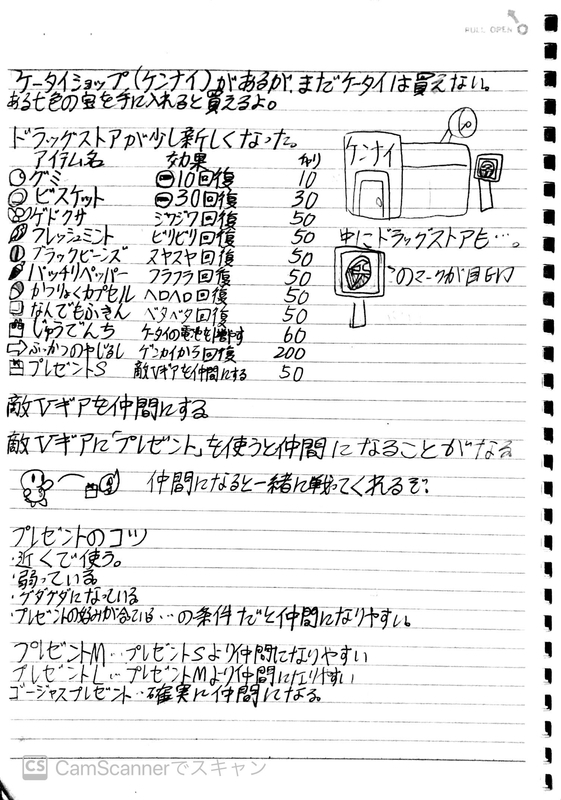 PULL OPEN
ケータイショップ(ケンナイ)があるが、まだケータイは買えない。
ある七色の宝を手に入れると買えるよ。
ドラッグストアが少し新しくなった。
アイテム名 効果
グミ 10回復 10
ビスケット 30回復 30
ゲドクサ ジワジワ回復 50
フレッシュミント ビリビリ回復 50
ブラックビーンズ スヤスヤ回復 50
バッチリペッパー フラフラ回復 50
かつりょくカプセル ヘロヘロ回復 50
なんでもふきん ベタベタ回復 50
じゅうでんち ケータイの電池を増やす 60
ふっかつのやじるし ゲンカイから回復 200
プレゼントS 敵Vギアを仲間にする 50
ケンナイ
中にドラッグストアも…。
このマークが目印
敵Vギアを仲間にする
敵Vギアに「プレゼント」を使うと仲間になることがなる
仲間になると一緒に戦ってくれるぞ。
プレゼントのコツ
・近くで使う。
・弱っている
・ゲダゲダになっている
・プレゼントの好みが合ている…の条件だと仲間になりやすい。
プレゼントM…プレゼントSより仲間になりやすい
プレゼントL…プレゼントMより仲間になりやすい
ゴージャスプレゼント…確実に仲間になる。
CS CamScannerでスキャン